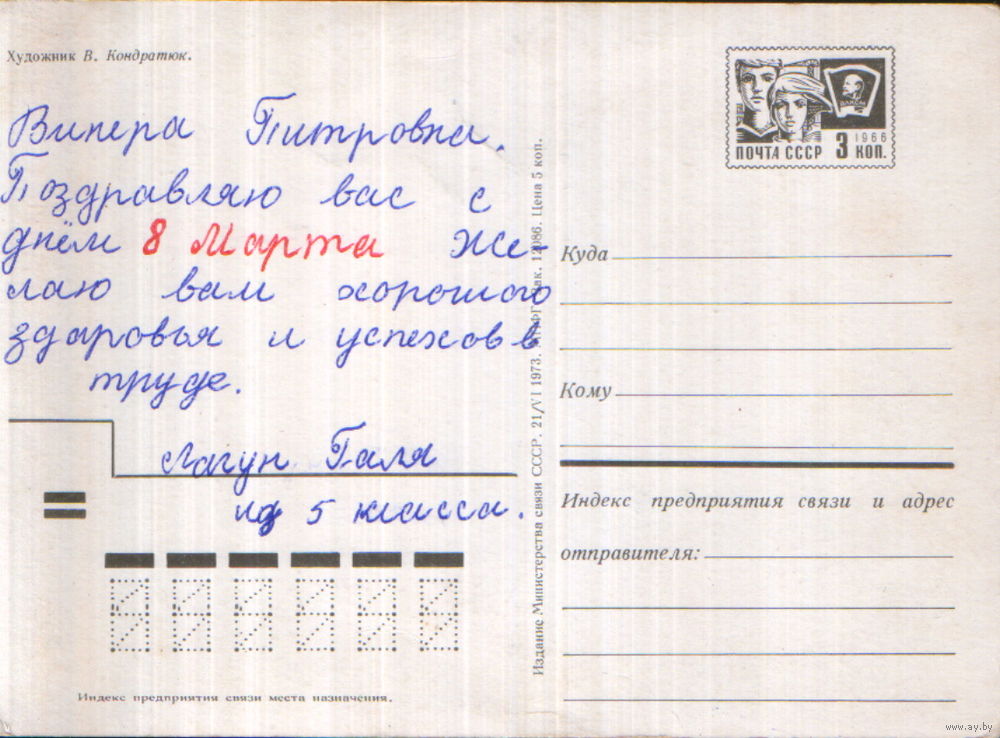 Художник В. Кондратюк.
Винера Питровна.
Поздравляю вас с
днём 8 Марта Же-
лаю вам хорошого
здаровья и успехов в
труде.
Лагун Галя
из 5 класса.
Индекс предприятия связи места назначения.
Издание Министерства связи СССР. 21/VI 1973. Зак. 12086. Цена 5 коп.
ВЛКСМ
1966
ПОЧТА СССР 3 КОП.
Куда
Кому
Индекс предприятия связи и адрес
отправителя:
www.ay.by